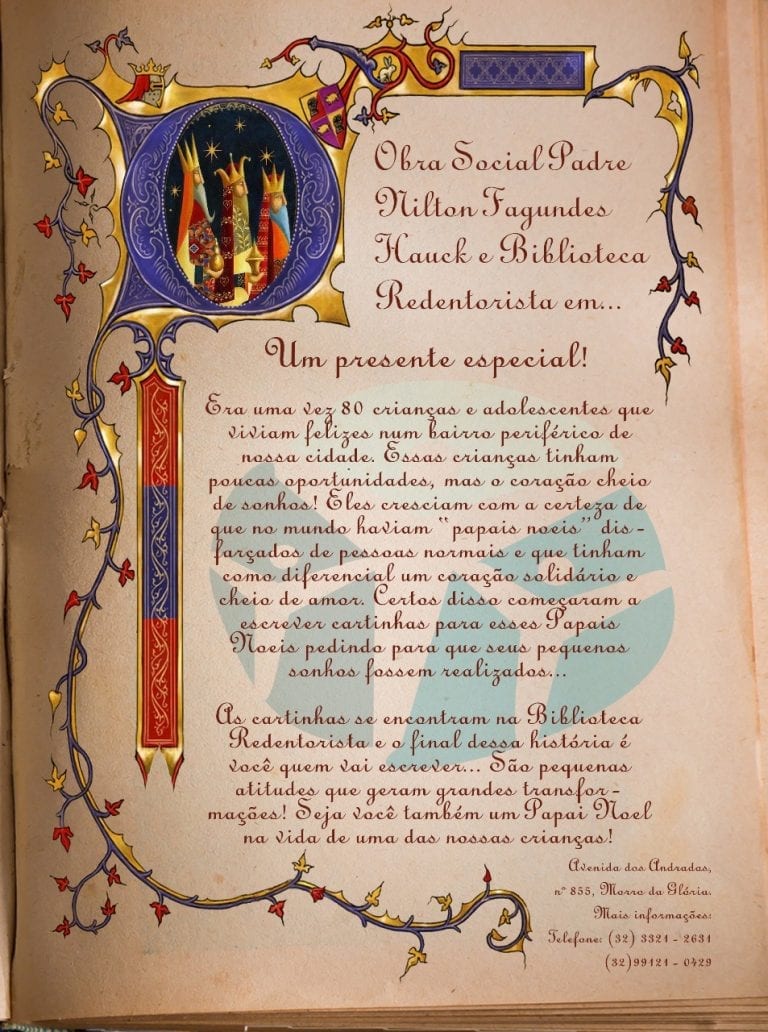 Obra Social Padre
Nilton Fagundes
Hauck e Biblioteca
Redentorista em...
Um presente especial!
Era uma vez 80 crianças e adolescentes que
viviam felizes num bairro periférico de
nossa cidade. Essas crianças tinham
poucas oportunidades, mas o coração cheio
de sonhos! Eles cresciam com a certeza de
que no mundo haviam "papais noeis" dis-
farçados de pessoas normais e que tinham
como diferencial um coração solidário e
cheio de amor. Certos disso começaram a
escrever cartinhas para esses Papais
Noeis pedindo para que seus pequenos
sonhos fossem realizados...
As cartinhas se encontram na Biblioteca
Redentorista e o final dessa história é
você quem vai escrever... São pequenas
atitudes que geram grandes transfor-
mações! Seja você também um Papai Noel
na vida de uma das nossas crianças!
Avenida dos Andradas,
nº 855, Morro da Glória.
Mais informações:
Telefone: (32) 3321 - 2631
(32)99121 - 0429